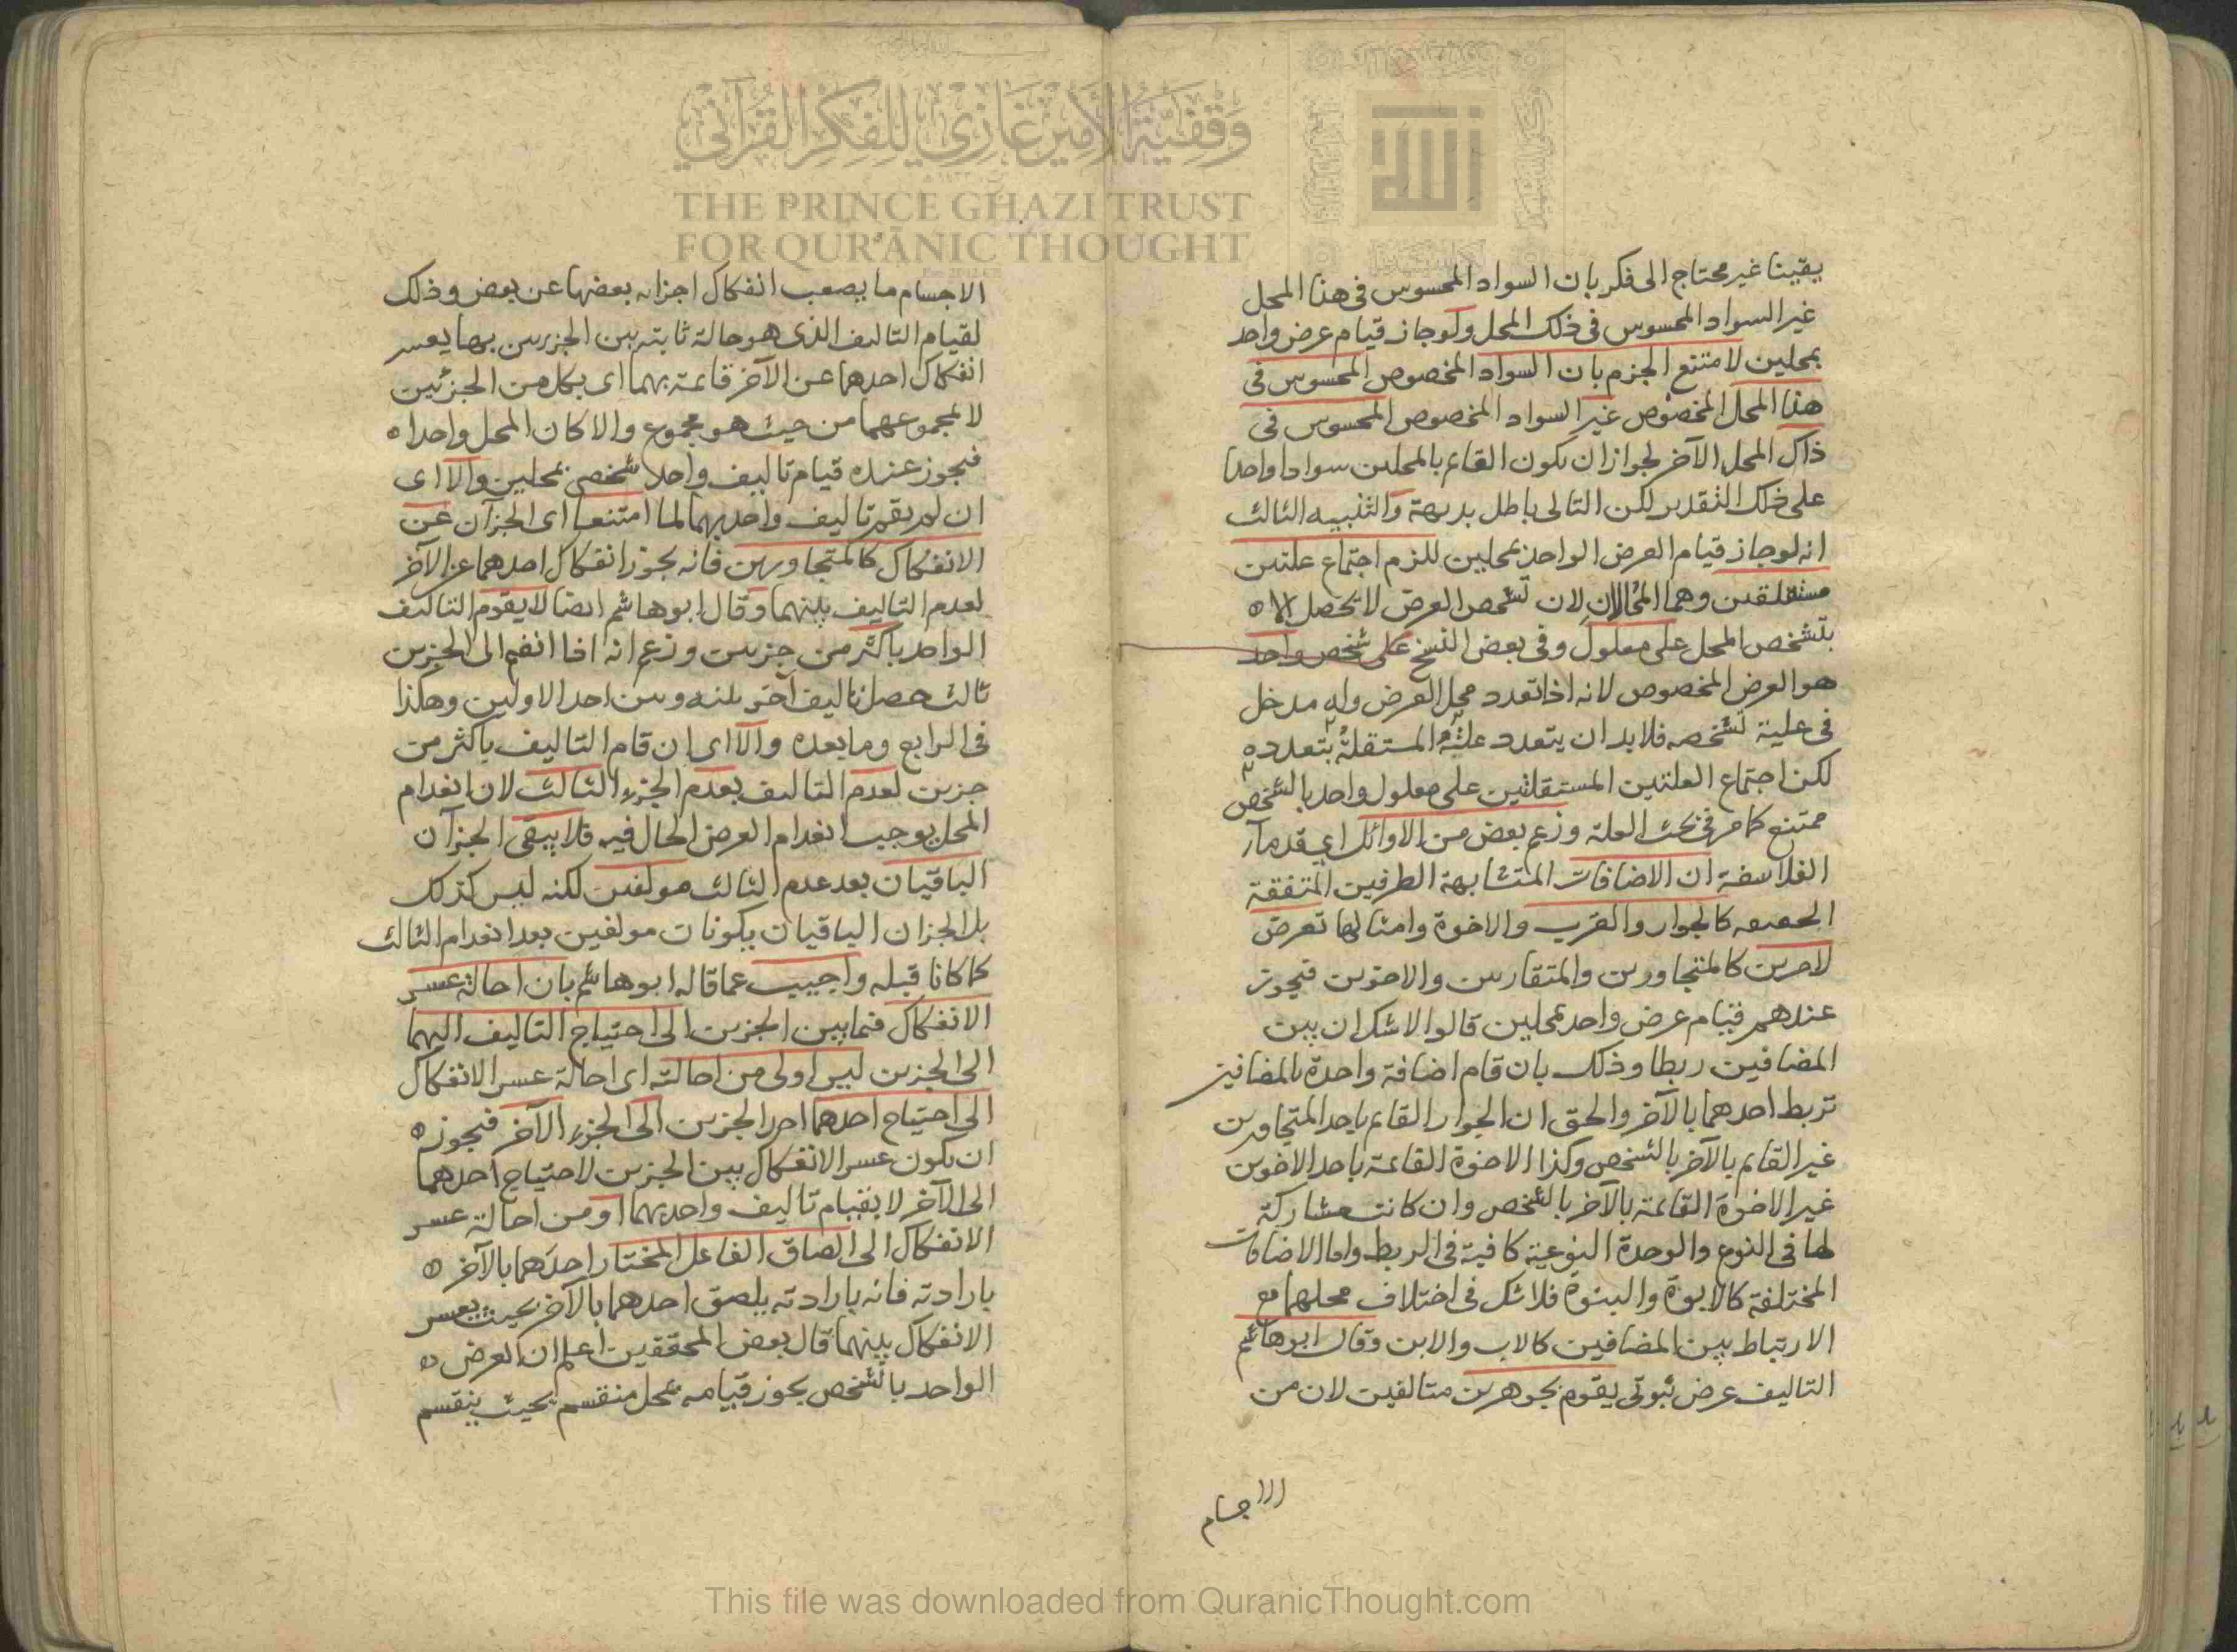 وقفية الأمير غازي للفكر القرآني
THE PRINCE GHAZI TRUST
FOR QUR'ĀNIC THOUGHT
يقينا غير محتاج الى فكر بان السواد المحسوس فى هذا المحل
غير السواد المحسوس فى ذلك المحل ولوجاز قيام عرض واحد
بمحلين لامتنع الجزم بان السواد المخصوص المحسوس فى
هذا المحل المخصوص غير السواد المخصوص المحسوس فى
ذاك المحل الآخر لجوازان يكون القايم بالمحلين سوادا واحدا
على ذلك التقدير لكن التالى باطل بديهة والتنبيه الثالث
انه لوجاز قيام العرض الواحد بمحلين للزم اجتماع علتين
مستقلتين وهما المحالان لان تشخص العرض لا تحصل الا
بتشخص المحل على معلول وفى بعض النسخ على شخص واحد
هو العرض المخصوص لانه اذا تعدد محل العرض وله مدخل
فى علية تشخصه فلابد ان يتعدد علته المستقلة بتعدده
لكن اجتماع العلتين المستقلتين على معلول واحد بالشخص
ممتنع كما مر فى بحث العلة وزعم بعض من الاوائل اي قدمآء
الفلاسفة ان الاضافات المتشابهة الطرفين المتفقة
الحقيقه كالجوار والقرب والاخوة وامثالها تعرض
لامرين كالمتجاورين والمتقاربين والاخوين فيجوز
عندهم قيام عرض واحد بمحلين قالوا لا شك ان بين
المضافين ربطا وذلك بان قام اضافة واحدة بالمضافين
تربط احدهما بالآخر والحق ان الجوار القايم باحد المتجاورين
غير القايم بالآخر بالشخص وكذا الاخوة القائمة باحد الاخوين
غير الاخوة القائمة بالآخر بالشخص وان كانت مشاركة
لها فى النوع والوحدة النوعية كافية فى الربط واما الاضافات
المختلفة كالابوة والبنوة فلا شك فى اختلاف محلهما مع
الارتباط بين المضافين كالاب والابن وقال ابوهاشم
التاليف عرض ثبوتى يقوم بجوهرين متالفين لان من
الاجسام
الاجسام ما يصعب انفكاك اجزائه بعضها عن بعض وذلك
لقيام التاليف الذى هو حالة ثابتة بين الجزئين بها يعسر
انفكاك احدهما عن الآخر قائمة بهما اى بكل من الجزئين
لا لمجموعهما من حيث هو مجموع والا كان المحل واحدا
فيجوز عنده قيام تاليف واحد شخصى بمحلين والا اى
ان لم يقم تاليف واحد بهما لما امتنعا اى الجزآن عن
الانفكاك كالمتجاورين فانه يجوز انفكاك احدهما عن الآخر
لعدم التاليف بينهما وقال ابوهاشم ايضا لا يقوم التاليف
الواحد باكثر من جزئين وزعم انه اذا انضم الى الجزئين
ثالث حصل تاليف آخر بينه وبين احد الاولين وهكذا
فى الرابع وما بعده والا اى ان قام التاليف باكثر من
جزئين لعدم التاليف بعدم الجزء الثالث لان انعدام
المحل يوجب انعدام العرض الحال فيه فلا يبقى الجزآن
الباقيان بعد عدم الثالث مولفين لكنه ليس كذلك
بل الجزان الباقيان يكونان مولفين بعد انعدام الثالث
كما كانا قبله واجيب عما قاله ابوهاشم بان احالة عسر
الانفكاك فيما بين الجزئين الى احتياج التاليف اليهما
الى الجزئين ليس اولى من احالته اى احالة عسر الانفكاك
الى احتياج احدهما احد الجزئين الى الجزء الآخر فيجوز
ان يكون عسر الانفكاك بين الجزئين لاحتياج احدهما
الى الآخر لا بقيام تاليف واحد بهما او من احالة عسر
الانفكاك الى الصاق الفاعل المختار احدهما بالآخر
بارادته فانه بارادته يلصق احدهما بالآخر بحيث يعسر
الانفكاك بينهما قال بعض المحققين اعلم ان العرض
الواحد بالشخص يجوز قيامه بمحل منقسم بحيث ينقسم
This file was downloaded from QuranicThought.com